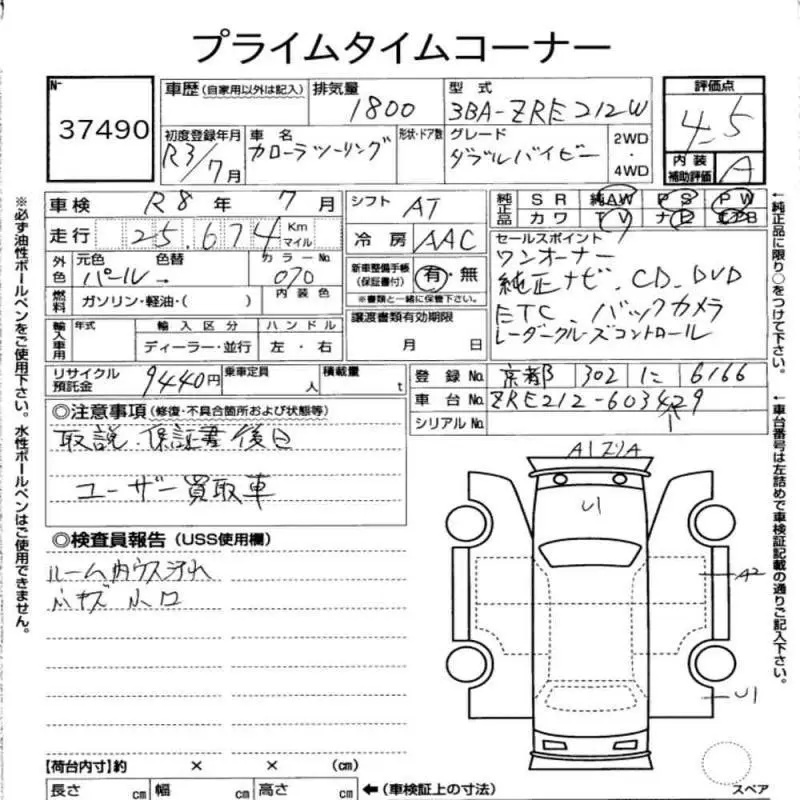 プライムタイムコーナー
No 37490
車歴 (自家用以外は記入)
排気量 1800
型式 3BA-ZRE212W
評価点 4.5
初度登録年月 R3/7月
車名 カローラツーリング
形状・ドア数
グレード ダブルバイビー
2WD・4WD
内装補助評価 A
車検 R8年 7月
シフト AT
純正品 SR 純AW PS PW
カワ TV ナビ
走行 25.674 Km マイル
冷房 AAC
セールスポイント
ワンオーナー
純正ナビ.CD.DVD
ETC.バックカメラ
レーダークルーズコントロール
外色 元色 パール 色替 カラーNo 070
新車整備手帳(保証書付) 有・無
※書類と一緒に保管下さい。
燃料 ガソリン・軽油・( ) 内装色
輸入車用 年式 輸入区分 ハンドル
ディーラー・並行 左・右
譲渡書類有効期限
月 日
リサイクル預託金 9440円
乗車定員 人
積載量 t
登録No. 京都 302 に 6166
車台No. ZRE212-603429
シリアルNo.
◎注意事項(修復・不具合箇所および状態等)
取説.保証書後日
ユーザー買取車
◎検査員報告(USS使用欄)
ルーム内ウス汚れ
小キズ 小凹
A1
U1
A2
U1
スペア
【荷台内寸】約 × × (cm)
長さ cm 幅 cm 高さ cm ←(車検証上の寸法)
※必ず油性ボールペンをご使用下さい。水性ボールペンはご使用できません。
←純正品に限り○をつけて下さい。
←車台番号は左詰めで車検証記載の通りご記入下さい。